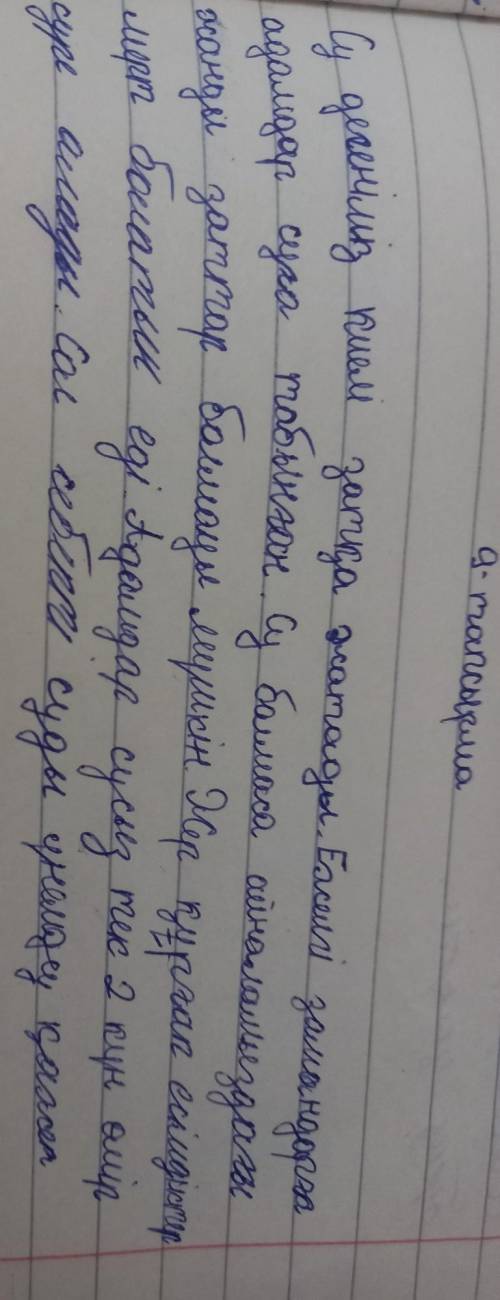 9-тапсырма
Су дегеніміз киелі затқа жатады. Ежелгі замандарға
адамдар суға табынған. Су болмаса айналамыздағы
жанды заттар болмауы мүмкін. Жер құрғап өсімдіктер
мұрт болатын еді. Адамдар сусыз тек 2 күн өмір
сүре алады. Сол себепті суды үнемдеу қажет